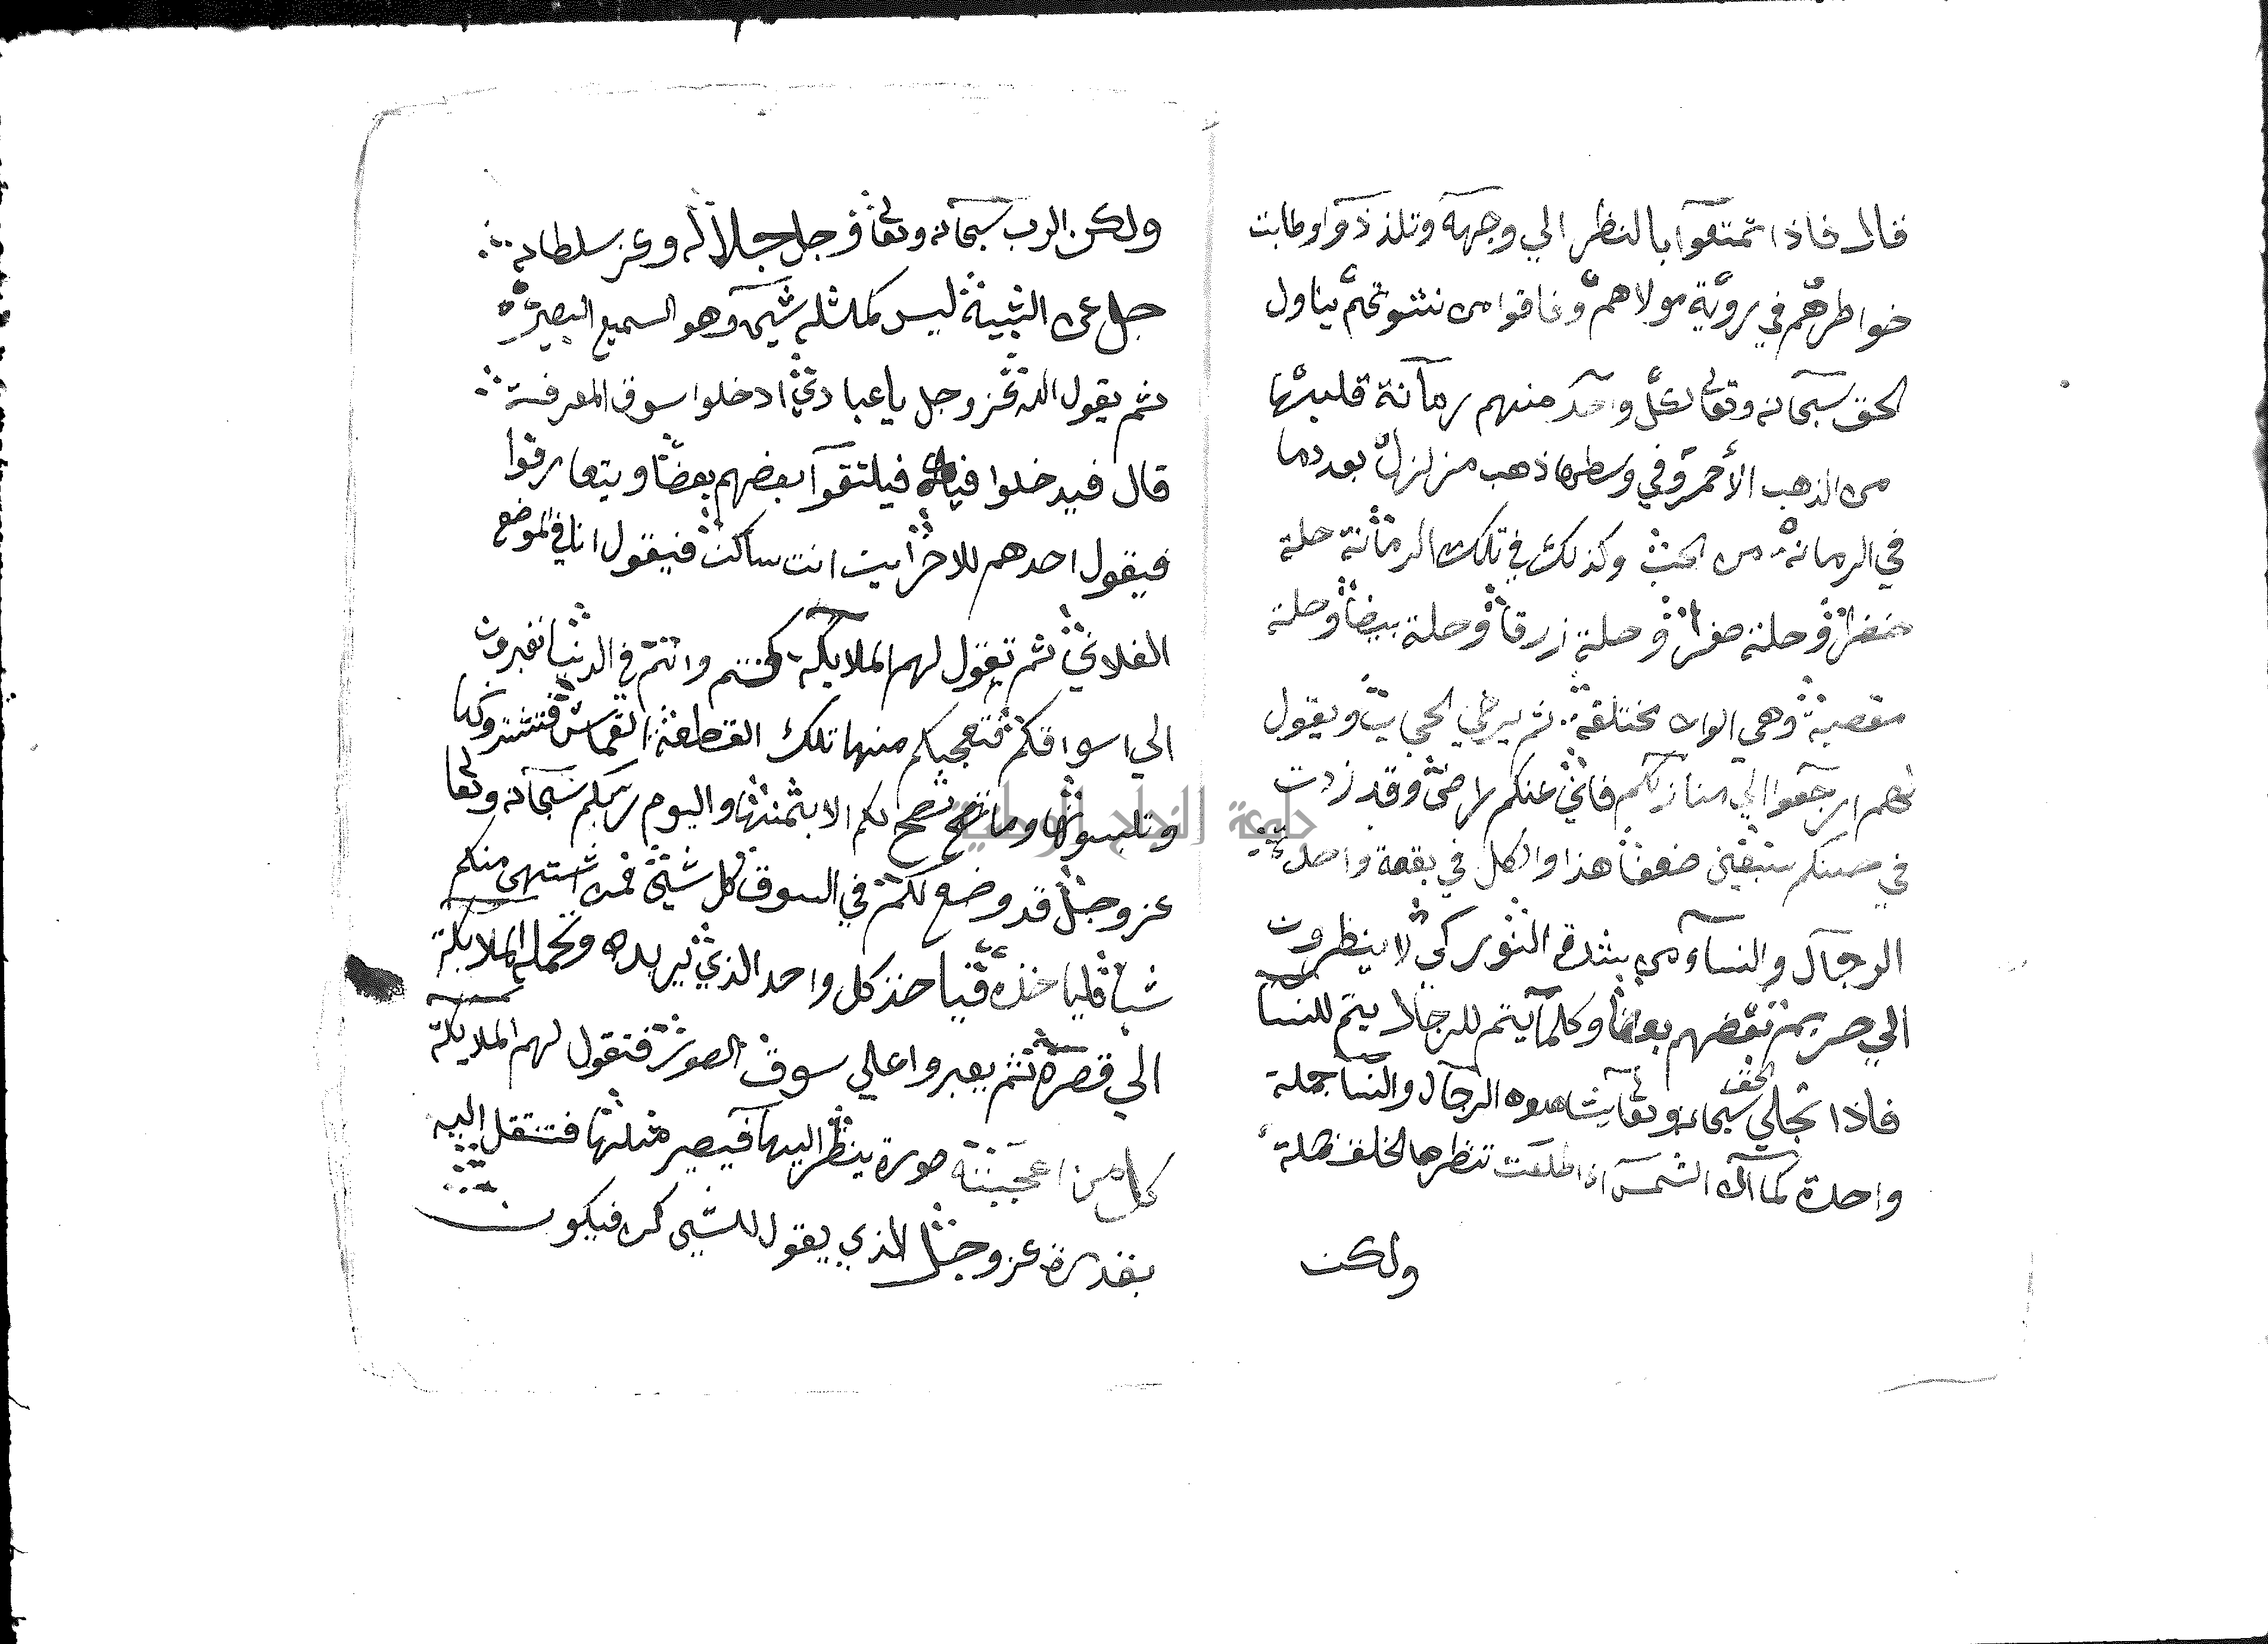 قال فاذا تمتعوا بالنظر الي وجهه وتلذذوا وطابت
خواطرهم في روية مولاهم وفاقوا من نشوتهم يناول
الحق سبحانه وتعالى لكل واحد منهم رمانة قلبها
من الذهب الأحمر وفي وسطها ذهب منزلزل بعدد ما
في الرمانة من الحب وكذلك في تلك الرمانة حلة
خضرا وحلة صفرا وحلة زرقا وحلة بيضا وحلة
مقصبة وهي الوان مختلفة ثم يرخي الحجاب ويقول
لهم ارجعوا الي منازلكم فاني عنكم راضي وقد زدت
في حسنكم سبعين ضعفا هذا والكل في بقعة واحدة
الرجال والنسآء من شدة النور كي لا ينظرون
الي حريم بعضهم بعضا وكلما يتم للرجال يتم للنسا
فاذا تجلي الحق سبحانه وتعالى يشاهدوه الرجال والنسا جملة
واحدة كما ان الشمس اذا طلعت تنظرها الخلق جملة
ولكن
ولكن الرب سبحانه وتعالى وجل جلاله وعز سلطانه
جل عن الشبيه ليس كمثله شيء وهو السميع البصير
ثم يقول الله عز وجل يا عبادي ادخلوا سوق المعرفة
قال فيدخلوا فيلتقوا بعضهم بعضا ويتعارفوا
فيقول احدهم للاخر اين انت ساكن فيقول انا في الموضع
الفلاني ثم تقول لهم الملايكة كنتم وانتم في الدنيا تعبرون
الي اسواقكم فتعجبكم منها تلك القطعة القماش فتشتروها
وتلبسونها وما تصح لكم الا بثمنها واليوم ربكم سبحانه وتعالى
عز وجل قد وضع لكم في السوق كل شيء فمن اشتهى منكم
شيا فلياخذه فياخذ كل واحد الذي يريده وتحمله الملايكة
الي قصره ثم يعبروا علي سوق الصور فتقول لهم الملايكة
كل من اعجبته صورة ينظر اليها فيصير مثلها فتنتقل اليه
بقدرة عز وجل الذي يقول للشيء كن فيكون
جامعة النجاح الوطنية